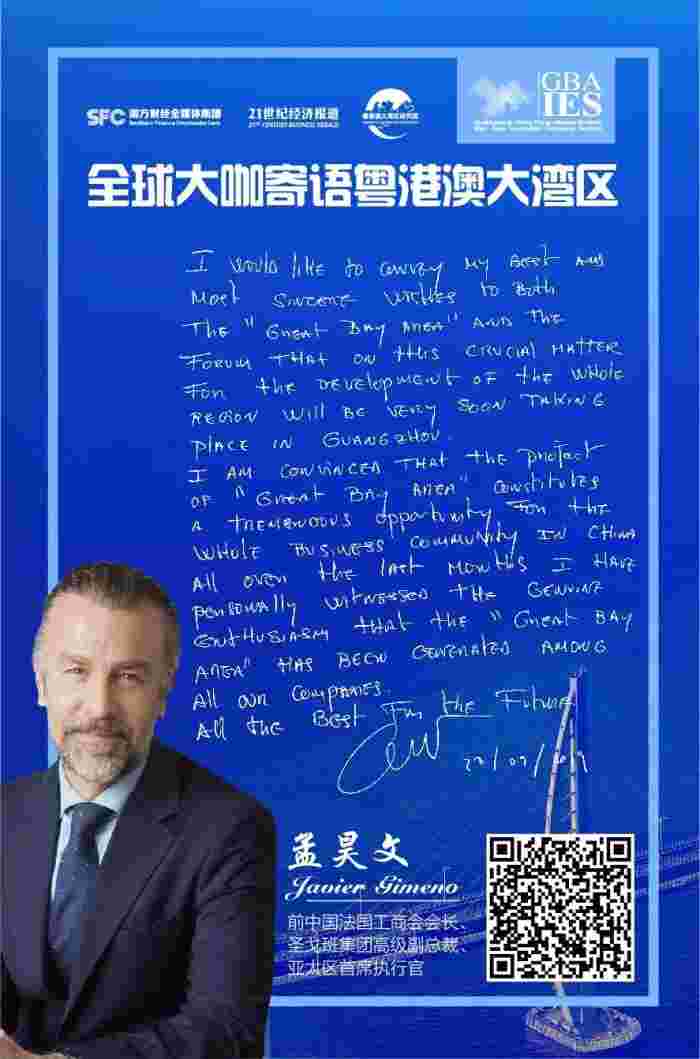 SFC 南方财经全媒体集团
Southern Finance Omnimedia Corp.
21世纪经济报道
21ST CENTURY BUSINESS HERALD
粤港澳大湾区研究院
GBA
IES
全球大咖寄语粤港澳大湾区
I WOULD LIKE TO CONVEY MY BEST AND
MOST SINCERE WISHES TO BOTH
THE "GREAT BAY AREA" AND THE
FORUM THAT ON THIS CRUCIAL MATTER
FOR THE DEVELOPMENT OF THE WHOLE
REGION WILL BE VERY SOON TAKING
PLACE IN GUANGZHOU.
I AM CONVINCED THAT THE PROJECT
OF "GREAT BAY AREA" CONSTITUTES
A TREMENDOUS OPPORTUNITY FOR THE
WHOLE BUSINESS COMMUNITY IN CHINA
ALL OVER THE LAST MONTHS I HAVE
PERSONALLY WITNESSED THE GENUINE
ENTHUSIASM THAT THE "GREAT BAY
AREA" HAS BEEN GENERATED AMONG
ALL OUR COMPANIES.
ALL THE BEST FOR THE FUTURE
孟昊文
Javier Gimeno
前中国法国工商会会长、
圣戈班集团高级副总裁、
亚太区首席执行官